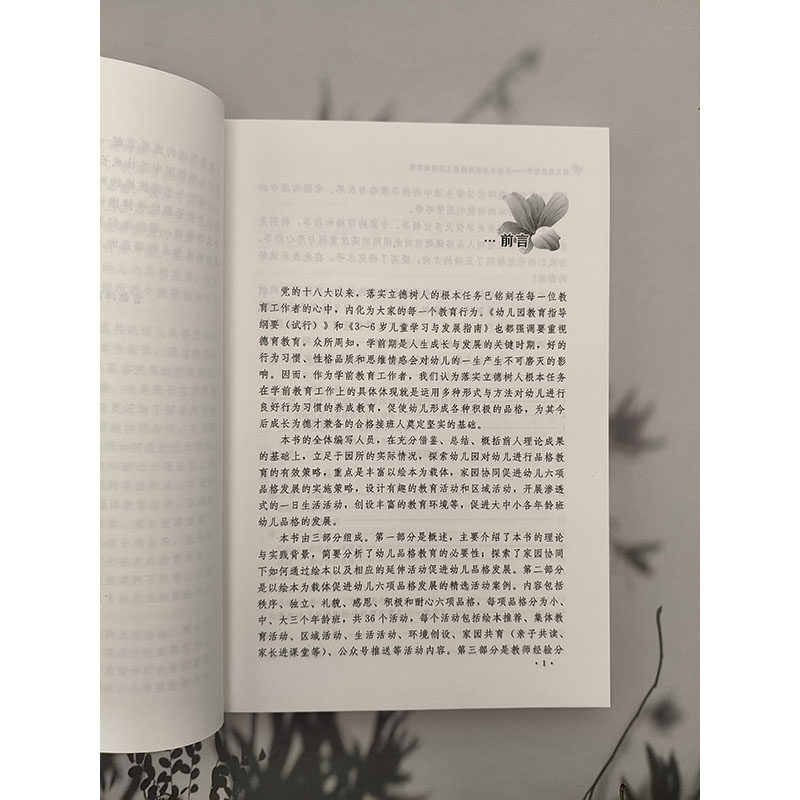 … 前言
党的十八大以来，落实立德树人的根本任务已铭刻在每一位教
育工作者的心中，内化为大家的每一个教育行为。《幼儿园教育指导
纲要（试行）》和《3～6岁儿童学习与发展指南》也都强调要重视
德育教育。众所周知，学前期是人生成长与发展的关键时期，好的
行为习惯、性格品质和思维情感会对幼儿的一生产生不可磨灭的影
响。因而，作为学前教育工作者，我们认为落实立德树人根本任务
在学前教育工作上的具体体现就是运用多种形式与方法对幼儿进行
良好行为习惯的养成教育，促使幼儿形成各种积极的品格，为其今
后成长为德才兼备的合格接班人奠定坚实的基础。
本书的全体编写人员，在充分借鉴、总结、概括前人理论成果
的基础上，立足于园所的实际情况，探索幼儿园对幼儿进行品格教育
的有效策略，重点是丰富以绘本为载体，家园协同促进幼儿六项
品格发展的实施策略，设计有趣的教育活动和区域活动，开展渗透
式的一日生活活动，创设丰富的教育环境等，促进大中小各年龄班
幼儿品格的发展。
本书由三部分组成。第一部分是概述，主要介绍了本书的理论
与实践背景，简要分析了幼儿品格教育的必要性；探索了家园协同
下如何通过绘本以及相应的延伸活动促进幼儿品格发展。第二部分
是以绘本为载体促进幼儿六项品格发展的精选活动案例。内容包括
秩序、独立、礼貌、感恩、积极和耐心六项品格，每项品格分为小、
中、大三个年龄班，共36个活动，每个活动包括绘本推荐、集体教
育活动、区域活动、生活活动、环境创设、家园共育（亲子共读、
家长进课堂等）、公众号推送等活动内容。第三部分是教师经验分
· 1 ·